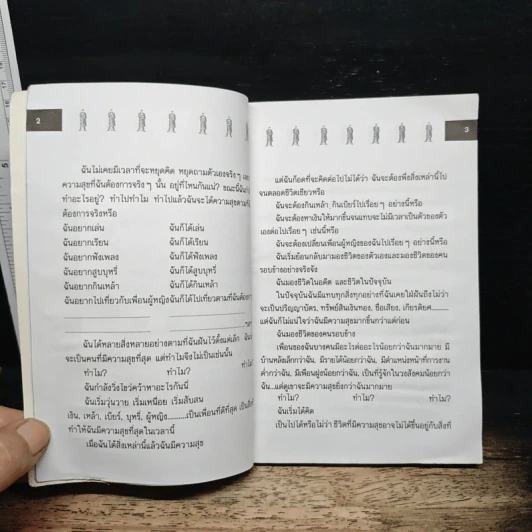 2
ฉันไม่เคยมีเวลาที่จะหยุดคิด หยุดถามตัวเองจริง ๆ
ความสุขที่ฉันต้องการจริง ๆ นั้น อยู่ที่ไหนกันแน่? ขณะนี้ฉัน
ทำอะไรอยู่? ทำไปทำไม ทำไปแล้วฉันจะได้ความสุขตามที่
ต้องการจริงหรือ
ฉันอยากเล่น ฉันก็ได้เล่น
ฉันอยากเรียน ฉันก็ได้เรียน
ฉันอยากฟังเพลง ฉันก็ได้ฟังเพลง
ฉันอยากสูบบุหรี่ ฉันก็ได้สูบบุหรี่
ฉันอยากกินเหล้า ฉันก็ได้กินเหล้า
ฉันอยากไปเที่ยวกับเพื่อนผู้หญิงฉันก็ได้ไปเที่ยวตามที่ฉันต้อง
ฉันได้หลายสิ่งหลายอย่างตามที่ฉันฝันไว้ตั้งแต่เล็ก
จะเป็นคนที่มีความสุขที่สุด แต่ทำไมจึงไม่เป็นเช่นนั้น
ทำไม? ทำไม?
ฉันกำลังวิ่งไขว่คว้าหาอะไรกันนี่
ฉันเริ่มวุ่นวาย เริ่มเหนื่อย เริ่มสับสน
เงิน, เหล้า, เบียร์, บุหรี่, ผู้หญิง..........เป็นเพื่อนที่ดีที่สุด
ทำให้ฉันมีความสุขที่สุดในเวลานี้
เมื่อฉันได้สิ่งเหล่านี้แล้วฉันมีความสุข
3
แต่ฉันก็อดที่จะคิดต่อไปไม่ได้ว่า ฉันจะต้องพึ่งสิ่งเหล่านี้ไป
จนตลอดชีวิตเชียวหรือ
ฉันจะต้องกินเหล้า กินเบียร์ไปเรื่อย ๆ อย่างนี้หรือ
ฉันจะต้องหาเงินให้มากขึ้นจนแทบจะไม่มีเวลาเป็นตัวของตัว
เองต่อไปเรื่อย ๆ เช่นนี้หรือ
ฉันจะต้องเปลี่ยนเพื่อนผู้หญิงของฉันไปเรื่อย ๆ อย่างนี้หรือ
ฉันเริ่มย้อนกลับมามองชีวิตของตัวเองและมองชีวิตของคน
รอบข้างอย่างจริงจัง
ฉันมองชีวิตในอดีต และชีวิตในปัจจุบัน
ในปัจจุบันฉันมีแทบทุกสิ่งทุกอย่างที่ฉันเคยใฝ่ฝันถึงไม่ว่า
จะเป็นปริญญาบัตร, ทรัพย์สินเงินทอง, ชื่อเสียง, เกียรติยศ.......
แต่ฉันก็ไม่แน่ใจว่าฉันมีความสุขมากขึ้นกว่าแต่ก่อน
ฉันมองชีวิตของคนรอบข้าง
เพื่อนของฉันบางคนมีอะไรต่ออะไรน้อยกว่าฉันมากมาย มี
บ้านหลังเล็กกว่าฉัน, มีรายได้น้อยกว่าฉัน, มีตำแหน่งหน้าที่การงาน
ต่ำกว่าฉัน, มีเพื่อนฝูงน้อยกว่าฉัน, เป็นที่รู้จักในวงสังคมน้อยกว่า
ฉัน...แต่ดูเขาจะมีความสุขยิ่งกว่าฉันมากมาย
ทำไม? ทำไม? ทำไม?
ฉันเริ่มได้คิด
เป็นไปได้หรือไม่ว่า ชีวิตที่มีความสุขอาจไม่ได้ขึ้นอยู่กับสิ่งที่